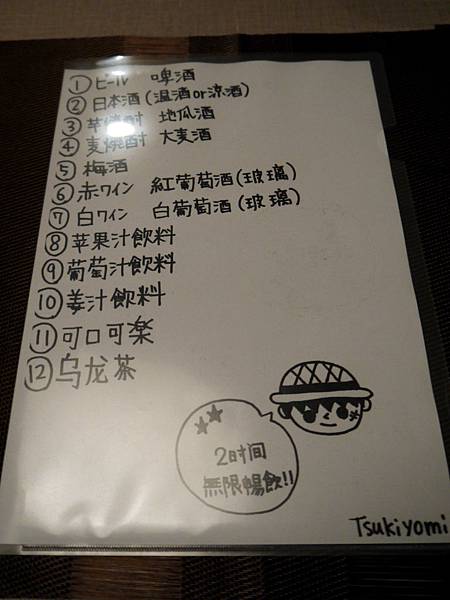 ① ビール 啤酒
② 日本酒(温酒or涼酒)
③ 芋焼酎 地瓜酒
④ 麦焼酎 大麦酒
⑤ 梅酒
⑥ 赤ワイン 紅葡萄酒(玻璃)
⑦ 白ワイン 白葡萄酒(玻璃)
⑧ 苹果汁飲料
⑨ 葡萄汁飲料
⑩ 姜汁飲料
⑪ 可口可楽
⑫ 乌龙茶
2时间
無限暢飲!!
Tsukiyomi